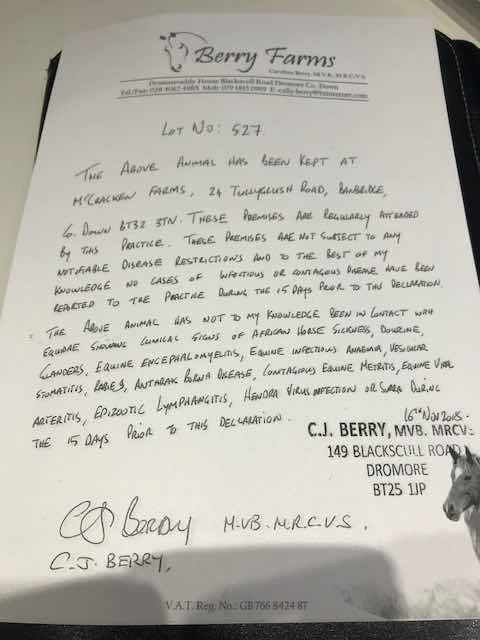 Berry Farms
Caroline Berry, M.V.B., M.R.C.V.S.
House Blackscull Road Dromore Co. Down
Tel/Fax: 028 4062 Mob:
LOT NO: 527.
THE ABOVE ANIMAL HAS BEEN KEPT AT
MCCRACKEN FARMS, 24 TULLYGLUSH ROAD, BANBRIDGE,
CO. DOWN BT32 3TN. THESE PREMISES ARE REGULARLY ATTENDED
BY THIS PRACTICE. THESE PREMISES ARE NOT SUBJECT TO ANY
NOTIFIABLE DISEASE RESTRICTIONS AND TO THE BEST OF MY
KNOWLEDGE NO CASES OF INFECTIOUS OR CONTAGIOUS DISEASE HAVE BEEN
REPORTED TO THE PRACTICE DURING THE 15 DAYS PRIOR TO THIS DECLARATION.
THE ABOVE ANIMAL HAS NOT TO MY KNOWLEDGE BEEN IN CONTACT WITH
EQUIDAE SHOWING CLINICAL SIGNS OF AFRICAN HORSE SICKNESS, DOURINE,
GLANDERS, EQUINE ENCEPHALOMYELITIS, EQUINE INFECTIOUS ANAEMIA, VESICULAR
STOMATITIS, RABIES, ANTHRAX BORNA DISEASE, CONTAGIOUS EQUINE METRITIS, EQUINE VIRAL
ARTERITIS, EPIZOOTIC LYMPHANGITIS, HENDRA VIRUS INFECTION OR SURRA DURING
THE 15 DAYS PRIOR TO THIS DECLARATION.
16TH NOV
C.J. BERRY, MVB. MRCVS
149 BLACKSCULL ROAD
DROMORE
BT25 1JP
CJ BERRY M.V.B. M.R.C.V.S.
C.J. BERRY,
V.A.T. Reg. No.: GB 766 8424 87